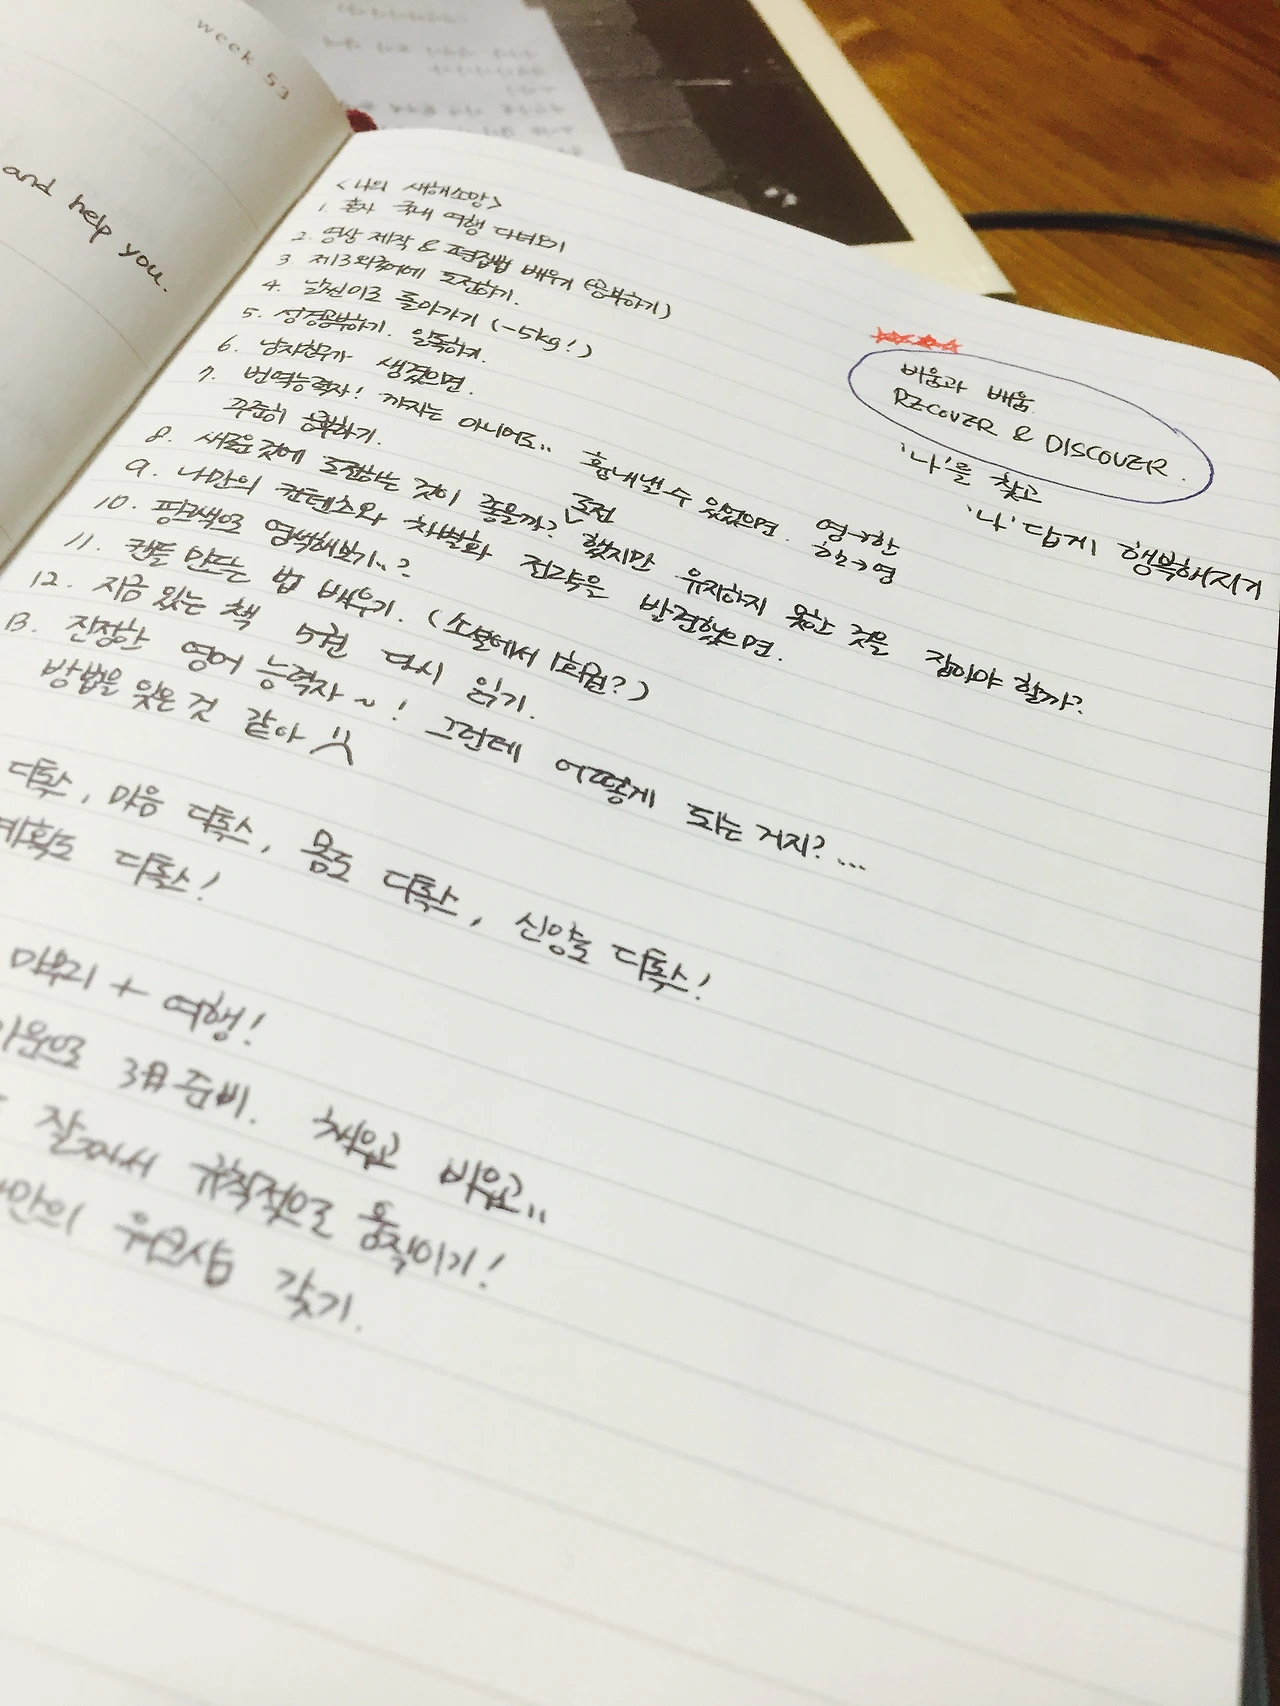 week 53
and help you.
<나의 새해소망>
1. 혼자 국내 여행 다녀오기
2. 영상 제작 & 편집법 배우기 (공부하기)
3 제3외국어에 도전하기.
4. 날씬이로 돌아가기 (-5kg!)
5. 성경공부하기. 일독하기.
6. 남자친구가 생겼으면.
7. 번역능력자! 까지는 아니어도.. 흉내낼 수 있었으면. 영→한
한→영
꾸준히 공부하기.
8. 새로운 것에 도전하는 것이 좋을까? 도전 했지만 유지하지 못한 것을 잡아야 할까?
9. 나만의 컨텐츠와 차별화 전략을 발견했으면.
10. 핑크색으로 염색해보기..?
11. 캔들 만드는 법 배우기. (소셜에서 1회권?)
12. 지금 있는 책 5권 다시 읽기.
13. 진정한 영어 능력자~! 그런데 어떻게 되는 거지?...
방법을 잊은 것 같아
비움과 배움.
RECOVER & DISCOVER.
'나'를 찾고
'나'답게 행복해지기
디톡스, 마음 디톡스, 몸도 디톡스, 신앙도 디톡스!
계획도 디톡스!
마무리 + 여행!
준비. 채우고 비우고..
잘 짜서 규칙적으로 움직이기!
워크샵 갖기.